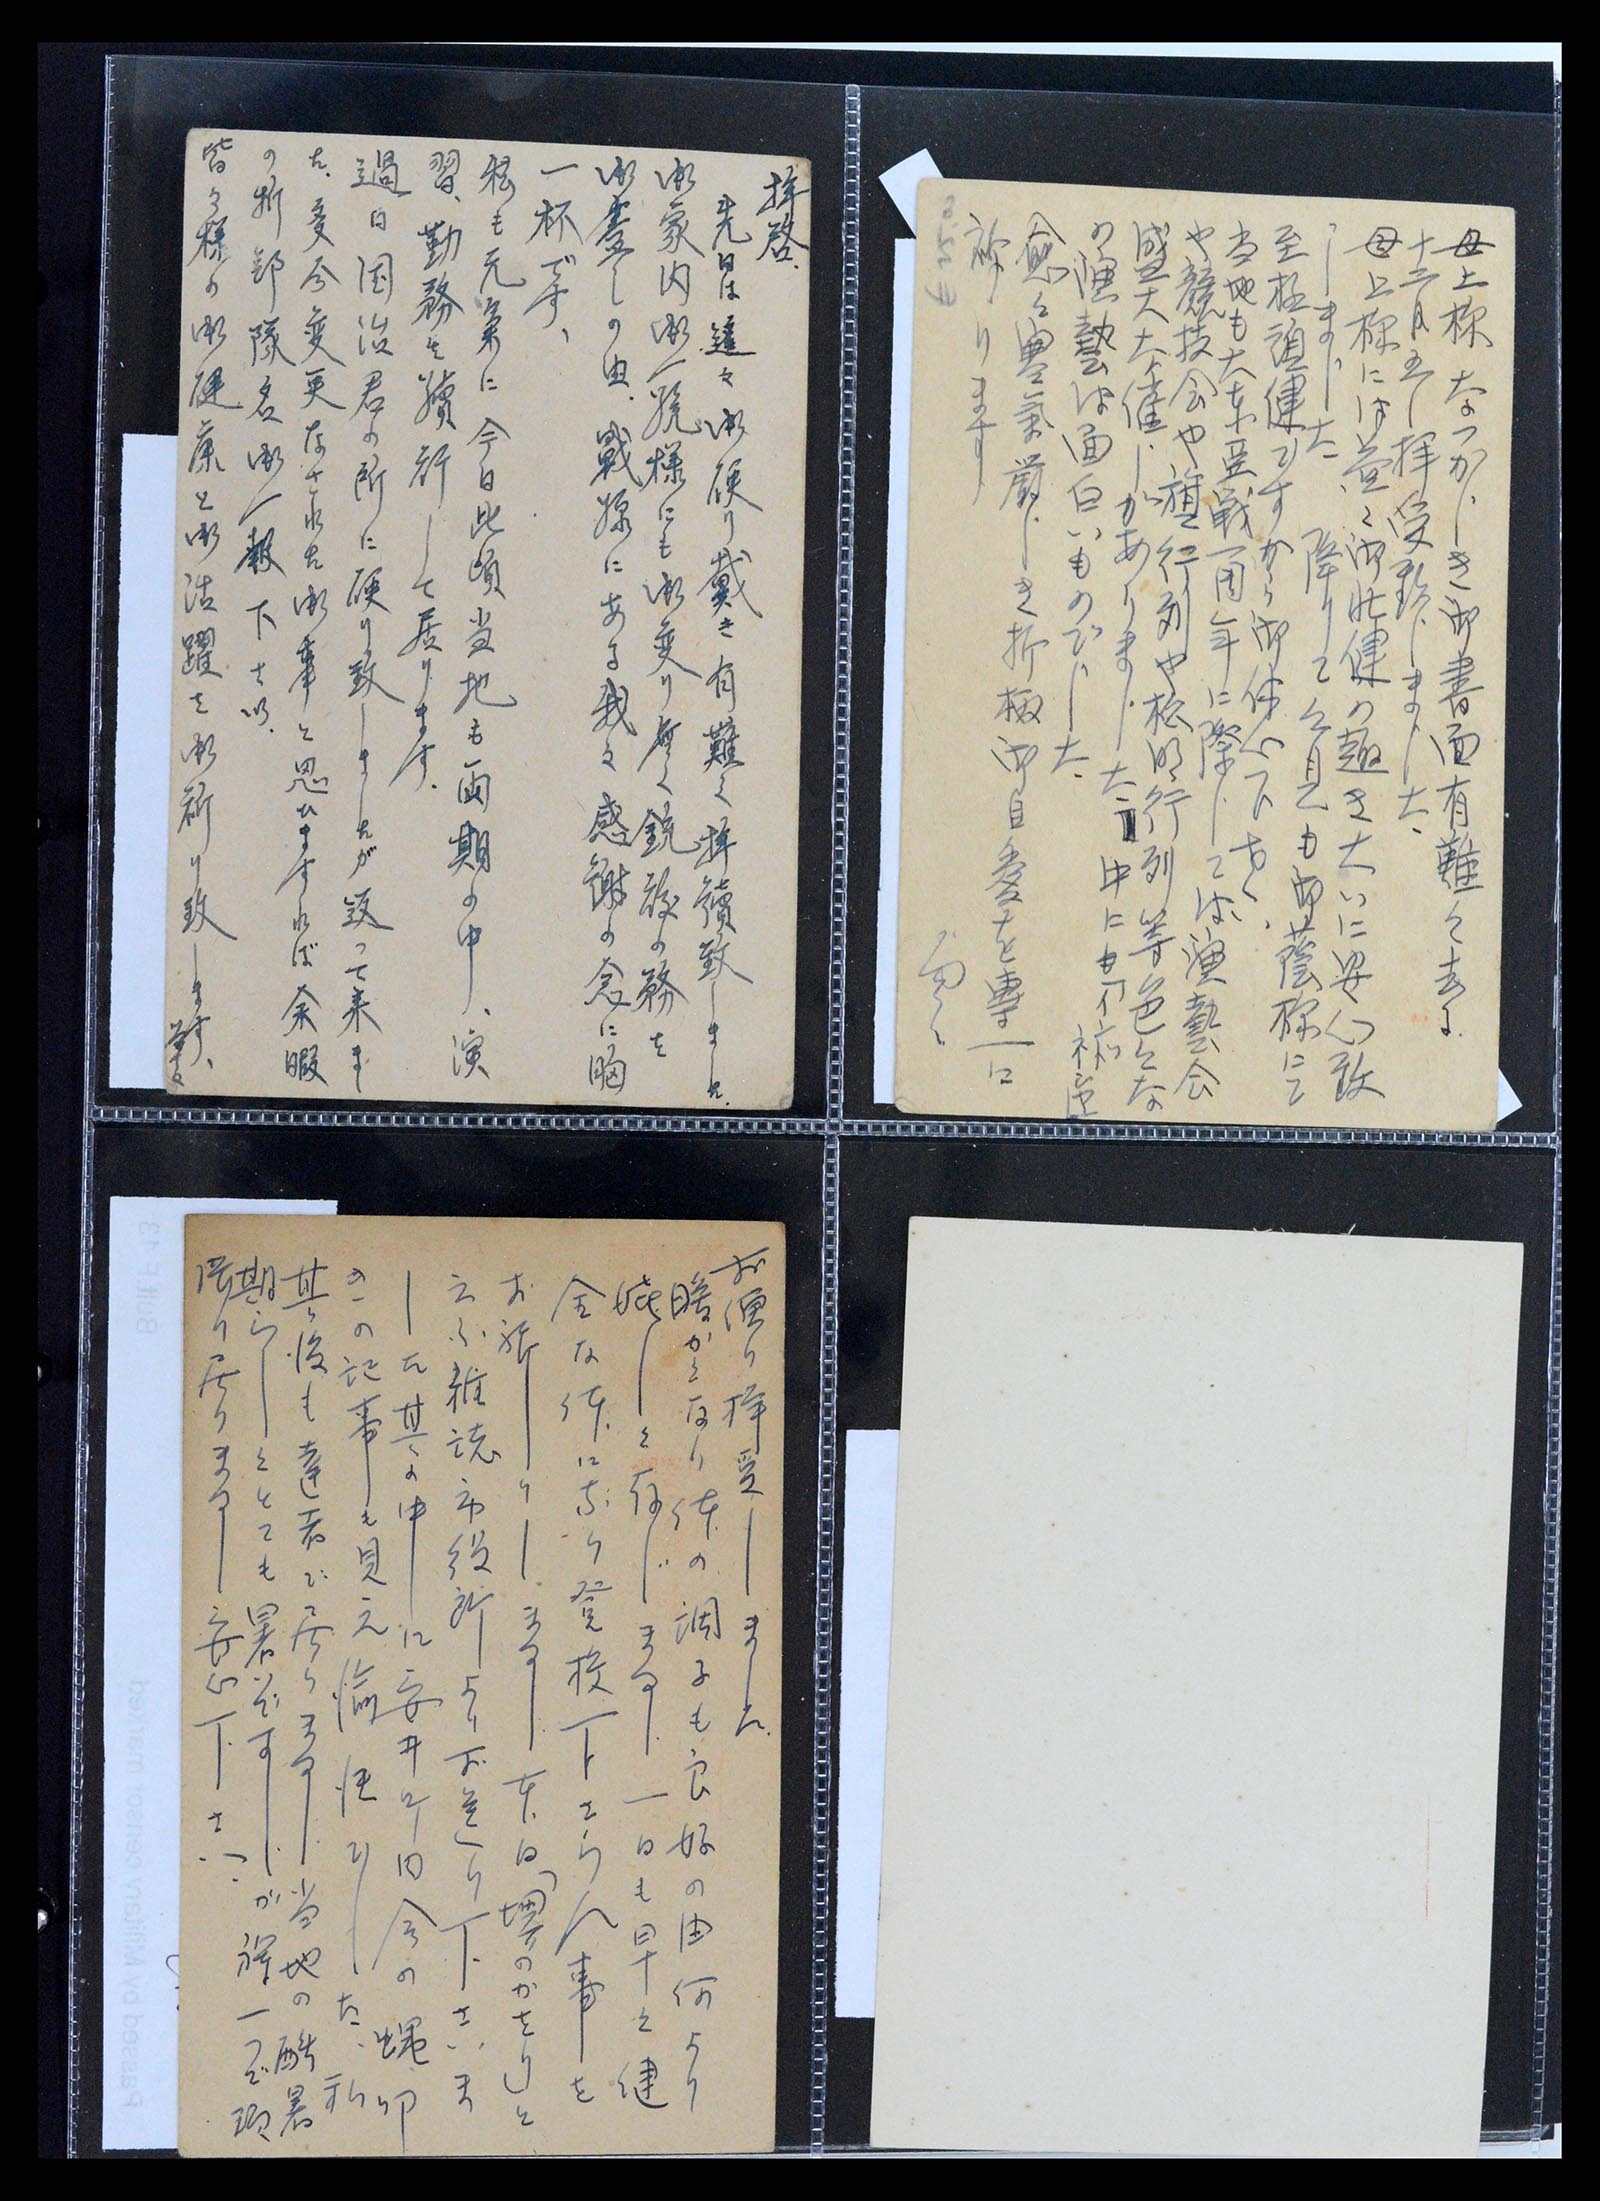 拝啓、
先日は達々御便り戴き有難く拝読致しました。
御家内御一統様にも御変り無く銃後の務を
御盡しの由、戦線にある我々感謝の念に胸
一杯です、
私も元気に今日此頃当地も雨期の中、演
習、勤務を續行して居ります。
過日国治君の所に便り致しましたが返って来ま
た、多分変更なされた御事と思ひますれば余暇
の折部隊名御一報下さい。
皆々様の御健康と御活躍を御祈り致します、
母上様 なつかしき御書面有難く去る
十二月五日拝受致しました、
母上様には益々御壮健の趣き大いに安心致
しました 降りて 私も御蔭様にて
至極頑健ですから御休心下さい、
当地も大東亜戦一周年に際しては演藝会
や競技会や旗行列や松明行列等色々な
盛大な催しがありました 中にも
の演藝は面白いものでした、
愈々寒氣厳しき折柄御自愛を専一に
祈ります
お便り拝受しました。
暖かくなり体の調子も良好の由何より
嬉しく存じます 一日も早く健
全な体になり登校下さらん事を
お祈りします 本日「堺のかをり」と
云ふ雑誌市役所よりお送り下さいま
した 其の中に安井町内会の
きの記事も見え愉快でした、私
其の後も達者で居ります 当地の酷暑
期らしくとても暑いですが 元気一ぱい頑
張り居ります 安心下さい。
Built F13
Passed by Military censor marked